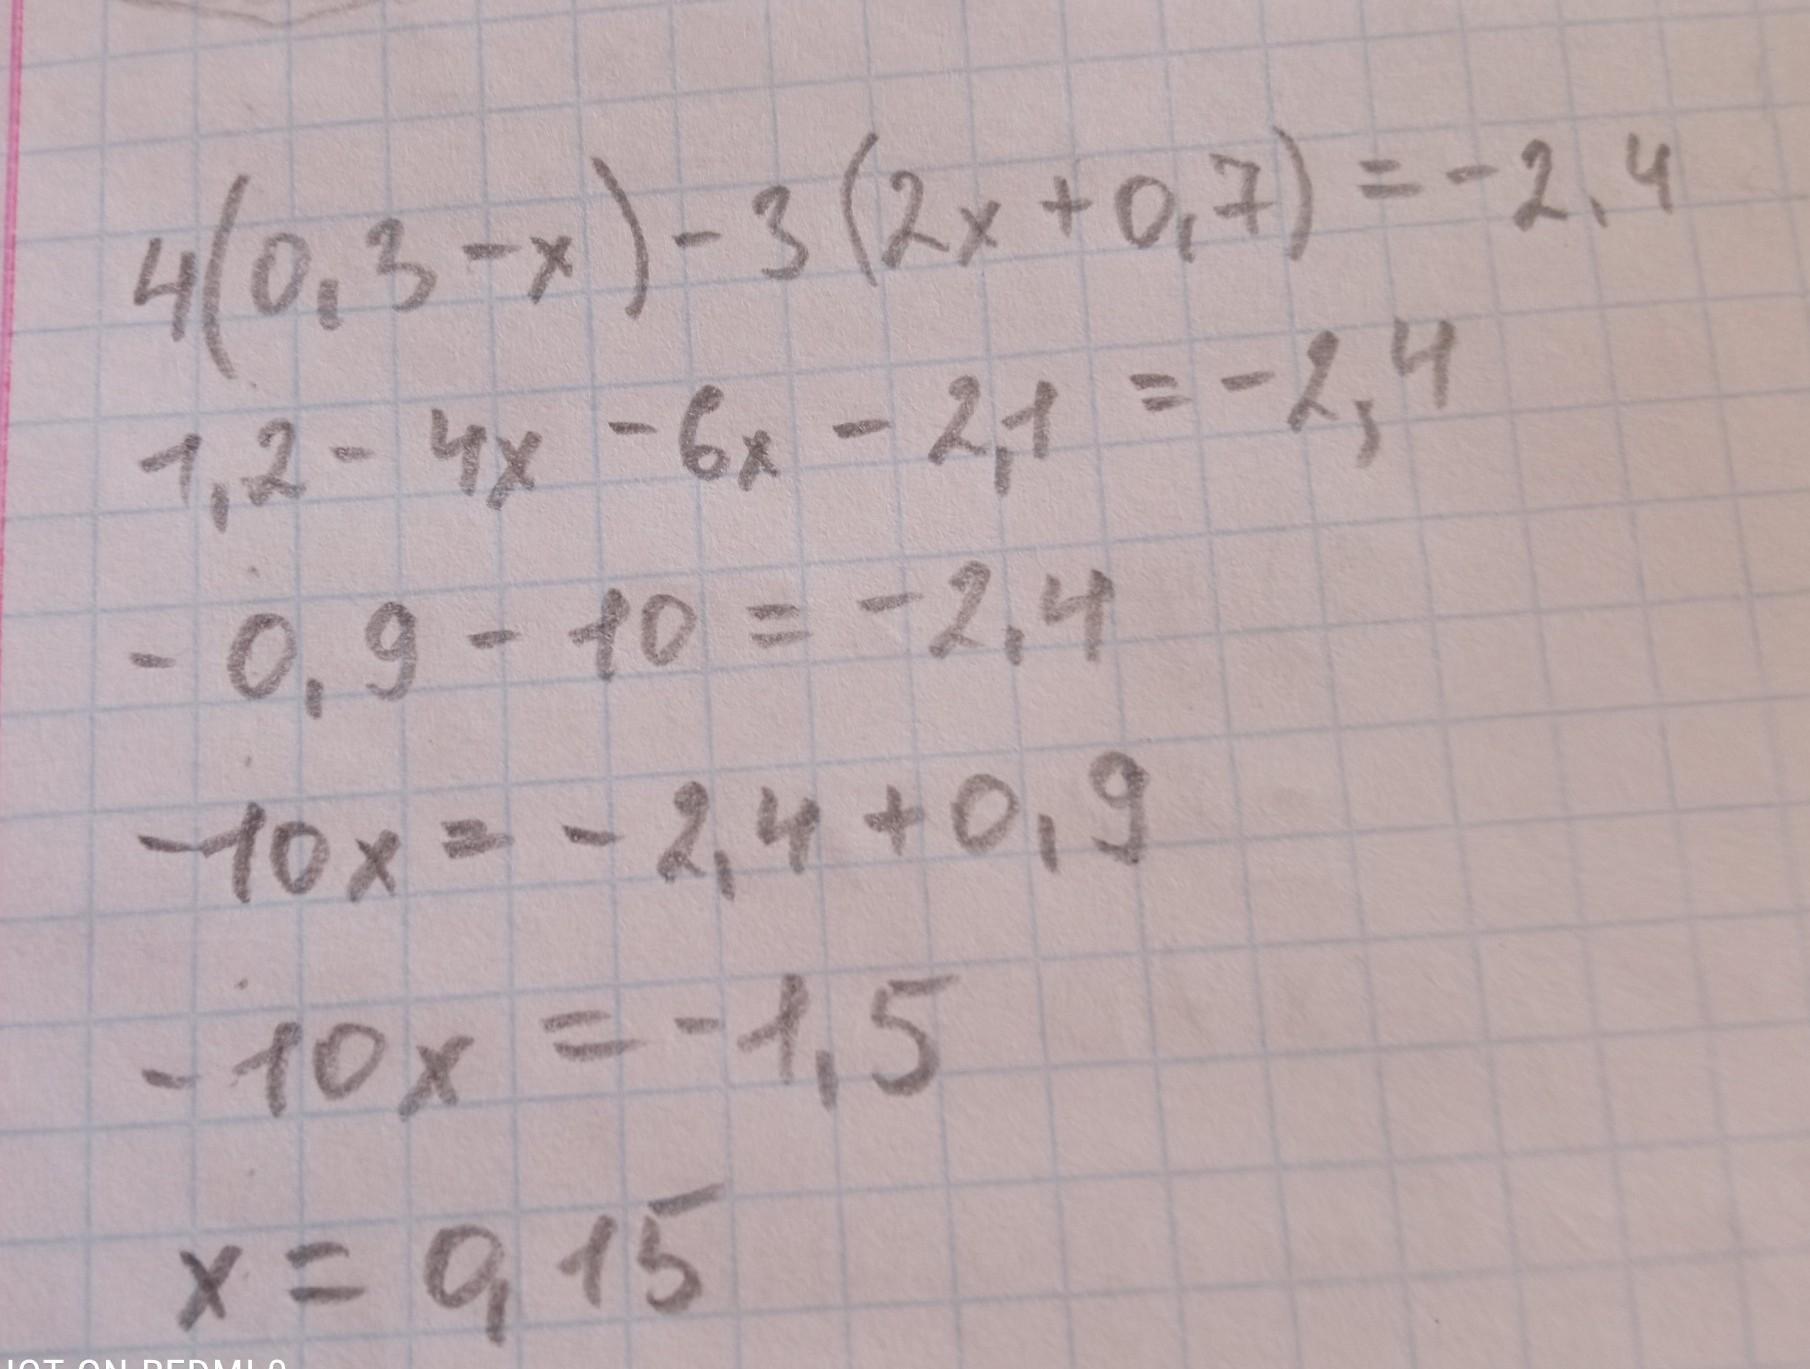 4(0,3-x)-3(2x+0,7)=-2,4
1,2-4x-6x-2,1=-2,4
-0,9-10=-2,4
-10x=-2,4+0,9
-10x=-1,5
x=0,15